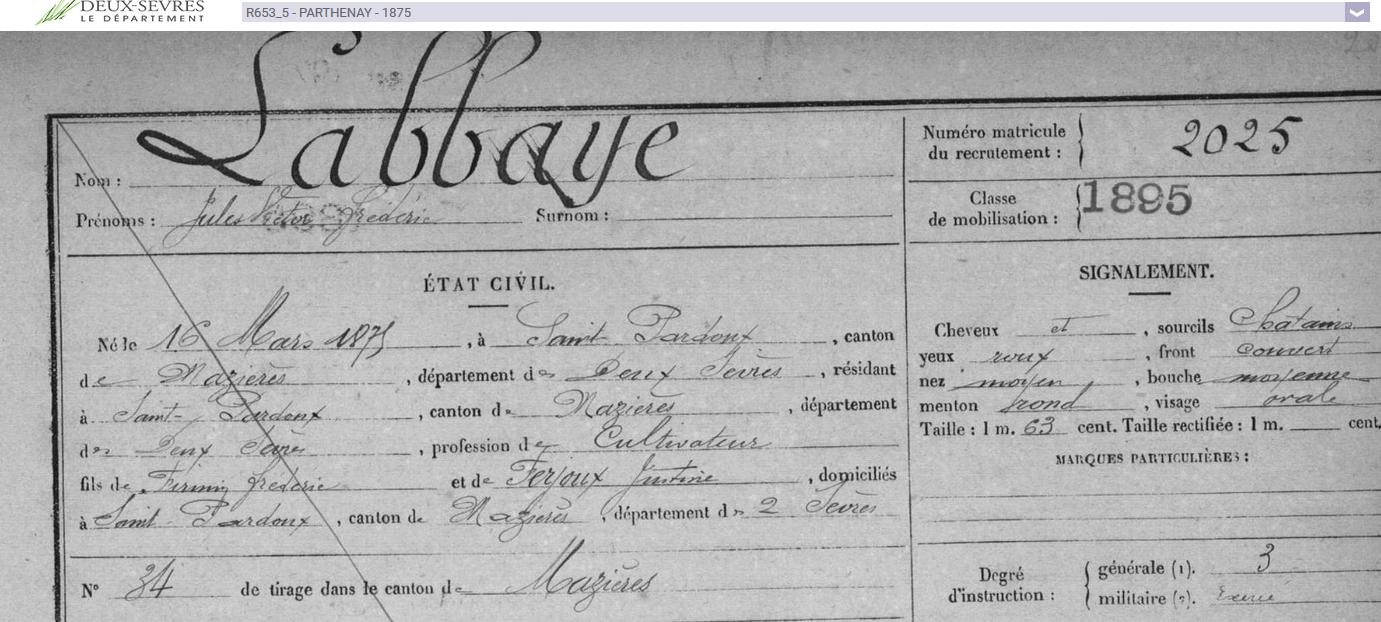 DEUX-SÈVRES
LE DÉPARTEMENT
R653_5 - PARTHENAY - 1875
Nom : Labbaye
Prénoms : Jules Victor Frédéric Surnom :
Numéro matricule du recrutement : 2025
Classe de mobilisation : 1895
ÉTAT CIVIL.
Né le 16 Mars 1875, à Saint Pardoux, canton
de Mazières, département des Deux Sèvres, résidant
à Saint-Pardoux, canton de Mazières, département
des Deux Sèvres, profession de Cultivateur
fils de Firmin Frédéric et de Ferjoux Justine, domiciliés
à Saint-Pardoux, canton de Mazières, département des 2 Sèvres
N° 34 de tirage dans le canton de Mazières
SIGNALEMENT.
Cheveux et, sourcils Chatains
yeux roux, front couvert
nez moyen, bouche moyenne
menton rond, visage ovale
Taille : 1 m. 63 cent. Taille rectifiée : 1 m. cent.
MARQUES PARTICULIÈRES :
Degré d'instruction : générale (1). 3
militaire (2). Exercé